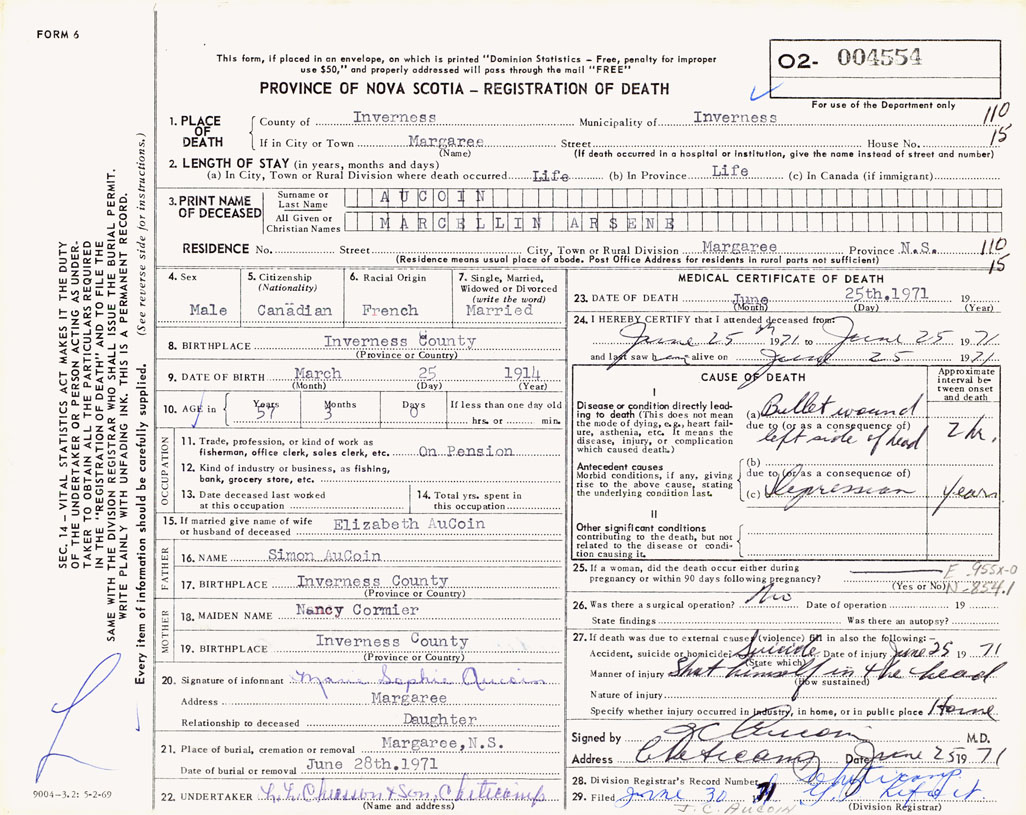 FORM 6
This form, if placed in an envelope, on which is printed "Dominion Statistics – Free, penalty for improper
use $50," and properly addressed will pass through the mail "FREE"
PROVINCE OF NOVA SCOTIA – REGISTRATION OF DEATH
O2- 004554
For use of the Department only
SEC. 14 – VITAL STATISTICS ACT MAKES IT THE DUTY
OF THE UNDERTAKER OR PERSON ACTING AS UNDER-
TAKER TO OBTAIN ALL THE PARTICULARS REQUIRED
IN THE "REGISTRATION OF DEATH" AND TO FILE THE
SAME WITH THE DIVISION REGISTRAR WHO SHALL ISSUE THE BURIAL PERMIT.
WRITE PLAINLY WITH UNFADING INK. THIS IS A PERMANENT RECORD.
Every item of information should be carefully supplied. (See reverse side for instructions.)
1. PLACE OF DEATH
County of Inverness Municipality of Inverness 110
If in City or Town Margaree Street House No. 15
(Name) (If death occurred in a hospital or institution, give the name instead of street and number)
2. LENGTH OF STAY (in years, months and days)
(a) In City, Town or Rural Division where death occurred Life (b) In Province Life (c) In Canada (if immigrant)
3. PRINT NAME OF DECEASED
Surname or Last Name AUCOIN
All Given or Christian Names MARCELLIN ARSENE
RESIDENCE No. Street City, Town or Rural Division Margaree Province N.S. 110
(Residence means usual place of abode. Post Office Address for residents in rural parts not sufficient) 15
4. Sex Male
5. Citizenship (Nationality) Canadian
6. Racial Origin French
7. Single, Married, Widowed or Divorced (write the word) Married
8. BIRTHPLACE Inverness County
(Province or Country)
9. DATE OF BIRTH March 25 1914
(Month) (Day) (Year)
10. AGE in Years 57 Months 3 Days 0 If less than one day old hrs. or min.
OCCUPATION
11. Trade, profession, or kind of work as
fisherman, office clerk, sales clerk, etc. On Pension
12. Kind of industry or business, as fishing,
bank, grocery store, etc.
13. Date deceased last worked
at this occupation
14. Total yrs. spent in
this occupation
15. If married give name of wife
or husband of deceased Elizabeth AuCoin
FATHER
16. NAME Simon AuCoin
17. BIRTHPLACE Inverness County
(Province or Country)
MOTHER
18. MAIDEN NAME Nancy Cormier
19. BIRTHPLACE Inverness County
(Province or Country)
20. Signature of informant Marie Sophie Aucoin
Address Margaree
Relationship to deceased Daughter
21. Place of burial, cremation or removal Margaree, N.S.
Date of burial or removal June 28th.1971
22. UNDERTAKER Chiasson & Son, Cheticamp
(Name and address)
9004-3.2: 5-2-69
MEDICAL CERTIFICATE OF DEATH
23. DATE OF DEATH June 25th.1971 19
(Month) (Day) (Year)
24. I HEREBY CERTIFY that I attended deceased from:
June 25th 1971 to June 25 1971
and last saw him alive on June 25 1971
CAUSE OF DEATH
Approximate interval between onset and death
I
Disease or condition directly leading to death (This does not mean
the mode of dying, e.g., heart failure, asthenia, etc. It means the
disease, injury, or complication
which caused death.)
(a) Bullet wound
due to (or as a consequence of)
left side of head 2 hr.
Antecedent causes
Morbid conditions, if any, giving
rise to the above cause, stating
the underlying condition last.
(b)
due to (or as a consequence of)
(c) Depression years
II
Other significant conditions
contributing to the death, but not
related to the disease or condition causing it.
25. If a woman, did the death occur either during
pregnancy or within 90 days following pregnancy? (Yes or No)
E 955X-0
N-854.1
26. Was there a surgical operation? No Date of operation 19
State findings Was there an autopsy?
27. If death was due to external causes (violence) fill in also the following:–
Accident, suicide or homicide Suicide Date of injury June 25 1971
(State which)
Manner of injury Shot himself in the head
(How sustained)
Nature of injury
Specify whether injury occurred in industry, in home, or in public place Home
Signed by J C Aucoin M.D.
Address Cheticamp Date June 25 1971
28. Division Registrar's Record Number Cheticamp
29. Filed June 30 71
(Division Registrar)
J. C. AUCOIN